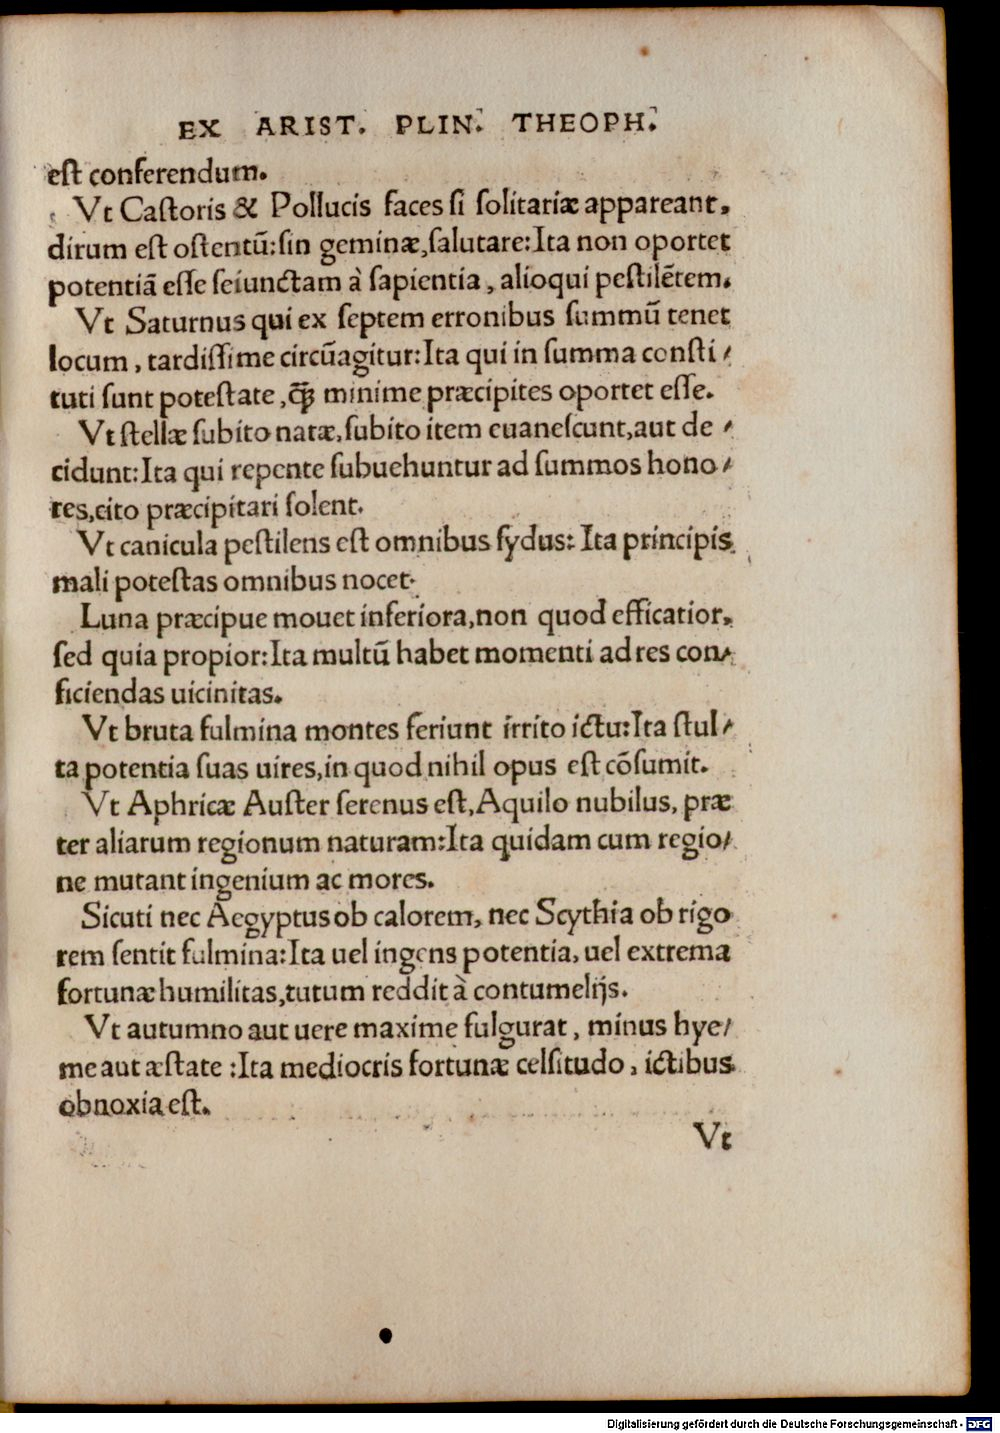 EX ARIST. PLIN. THEOPH.
est conferendum.
Vt Castoris & Pollucis faces si solitariæ appareant,
dirum est ostentū:sin geminæ,salutare:Ita non oportet
potentiā esse seiunctam à sapientia, alioqui pestilētem.
Vt Saturnus qui ex septem erronibus summū tenet
locum, tardissime circūagitur:Ita qui in summa consti/
tuti sunt potestate, minime præcipites oportet esse.
Vt stellæ subito natæ,subito item euanescunt,aut de/
cidunt:Ita qui repente subuehuntur ad summos hono/
res,cito præcipitari solent.
Vt canicula pestilens est omnibus sydus: Ita principis
mali potestas omnibus nocet.
Luna præcipue mouet inferiora,non quod efficatior,
sed quia propior:Ita multū habet momenti ad res con/
ficiendas uicinitas.
Vt bruta fulmina montes feriunt irrito ictu:Ita stul/
ta potentia suas uires,in quod nihil opus est cōsumit.
Vt Aphricæ Auster serenus est,Aquilo nubilus, præ
ter aliarum regionum naturam:Ita quidam cum regio/
ne mutant ingenium ac mores.
Sicuti nec Aegyptus ob calorem, nec Scythia ob rigo
rem sentit fulmina:Ita uel ingens potentia, uel extrema
fortunæ humilitas,tutum reddit à contumelijs.
Vt autumno aut uere maxime fulgurat, minus hye/
me aut æstate :Ita mediocris fortunæ celsitudo, ictibus
obnoxia est.
Vt
Digitalisierung gefördert durch die Deutsche Forschungsgemeinschaft - DFG